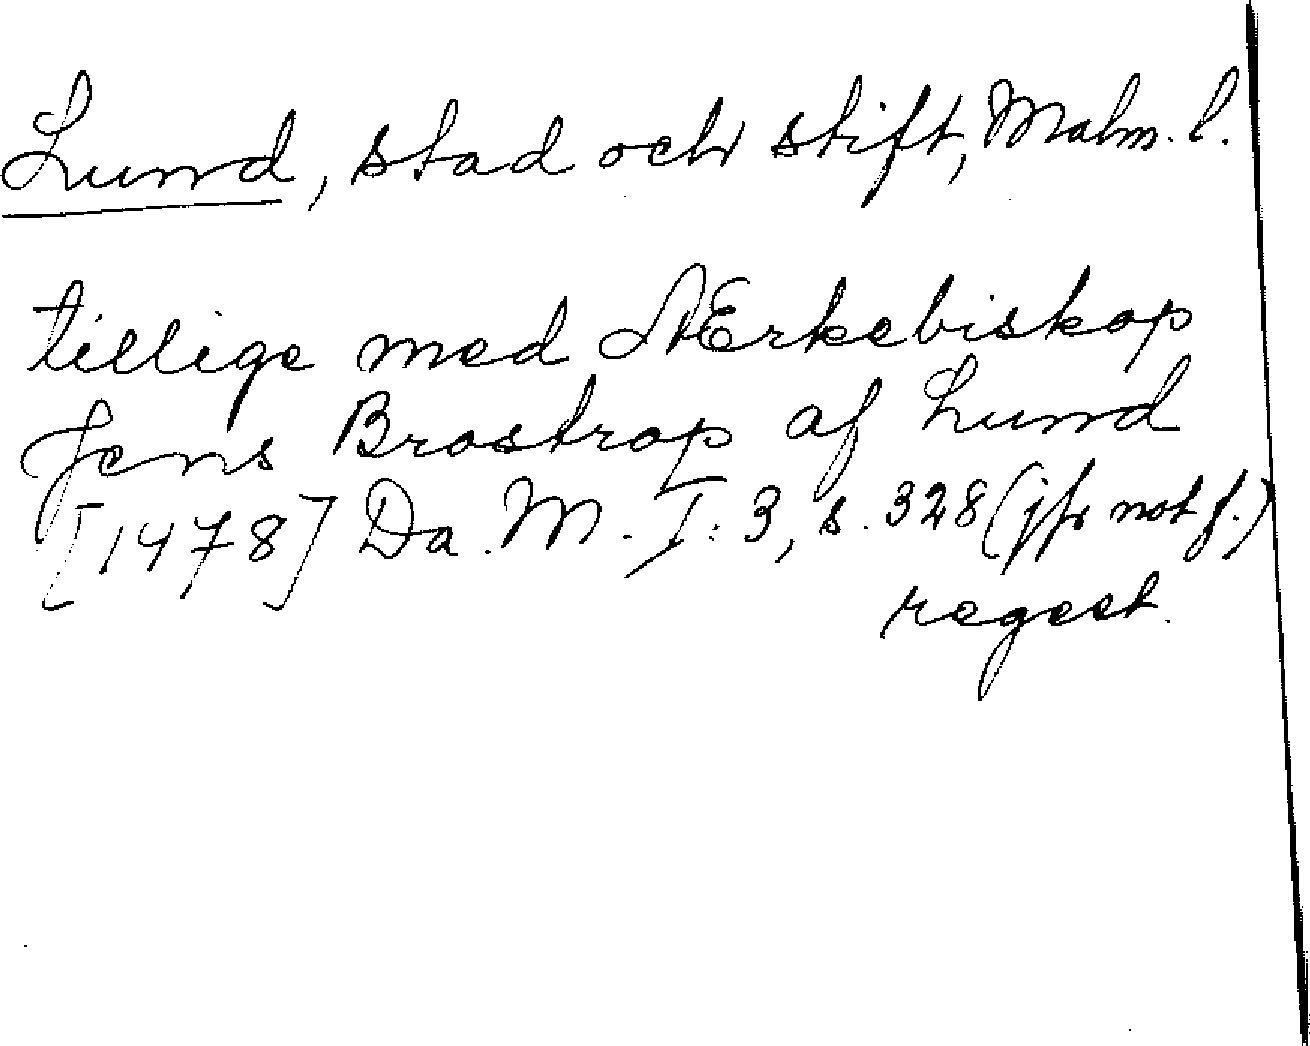 Lund, stad och stift, Malm. l.
tillige med Ærkebiskop
Jens Brostrop af Lund
[1478] Da. M. I: 3, s. 328 (jfr not f.)
regest.